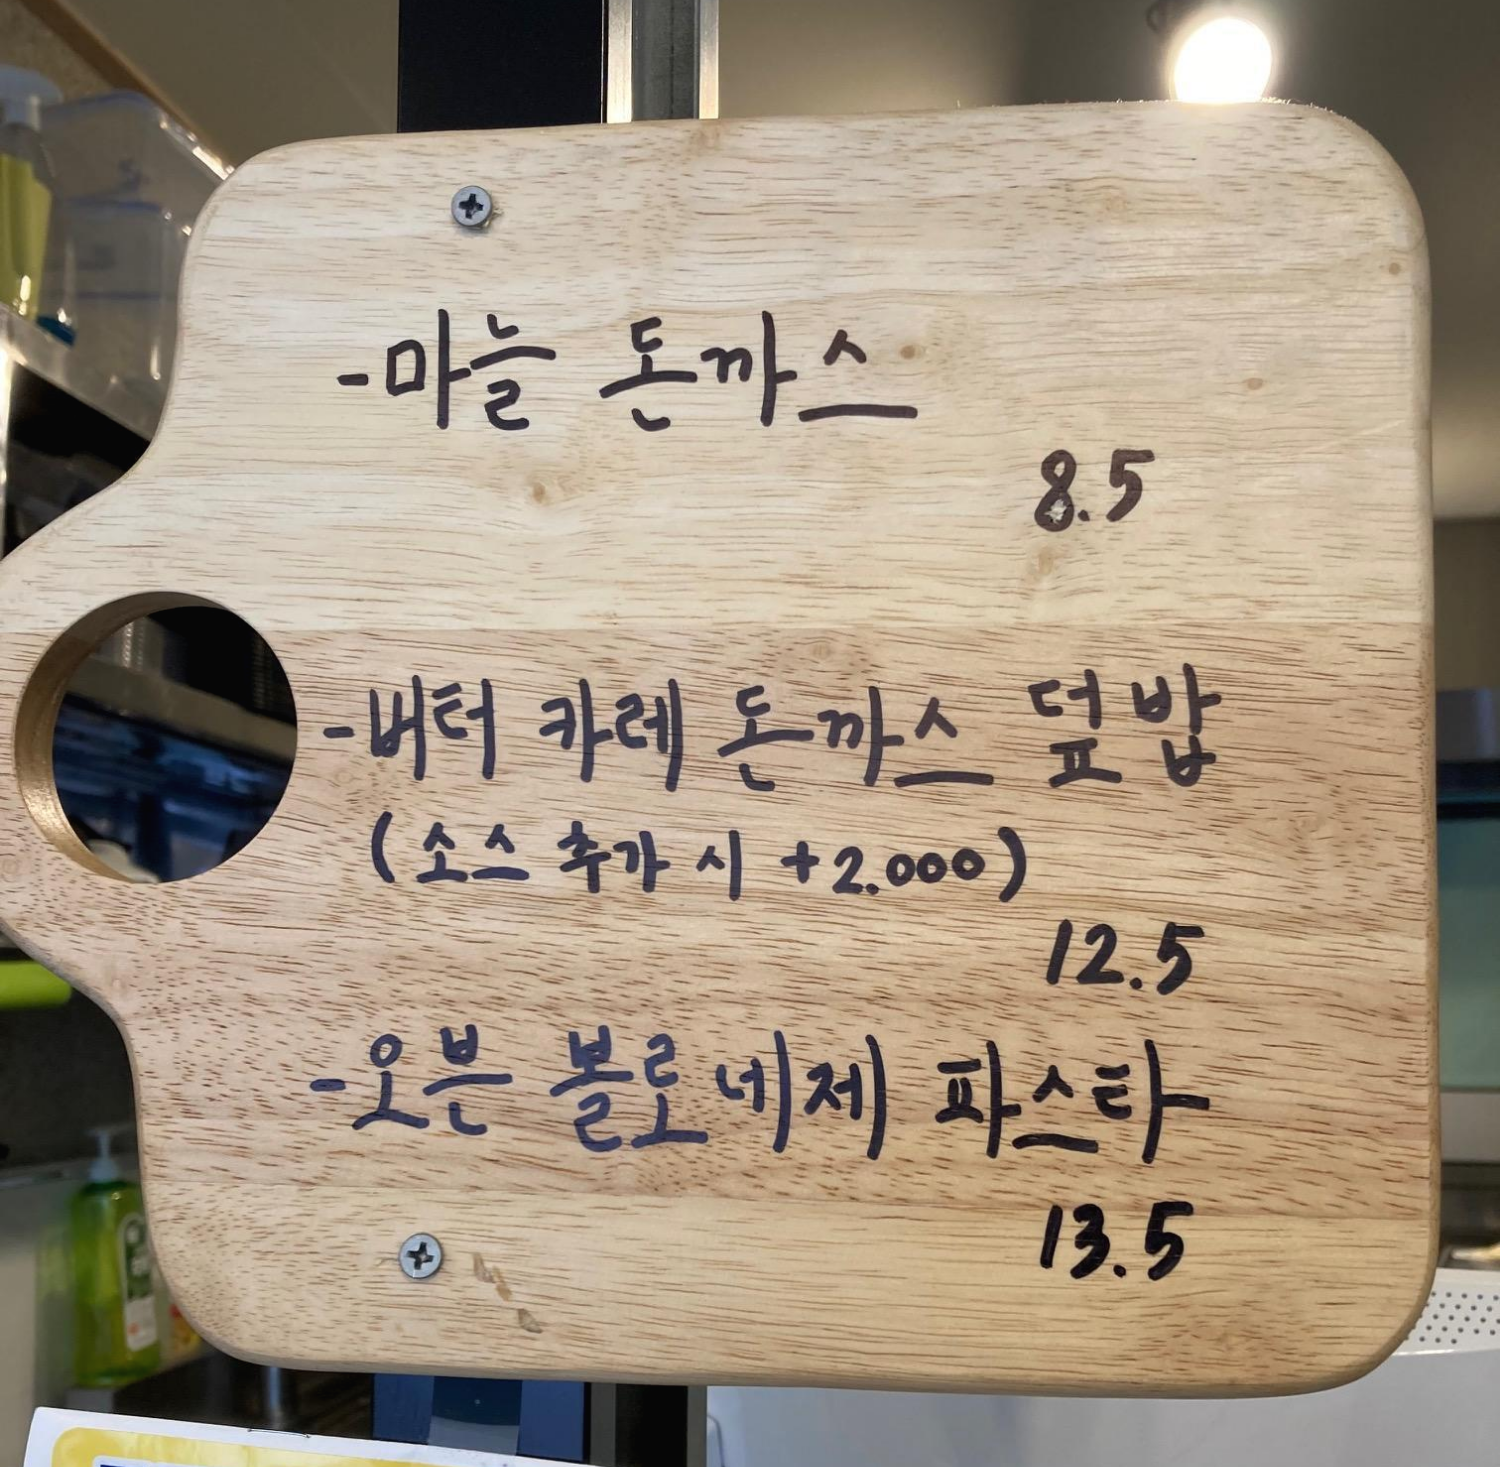 -마늘 돈까스
8.5
-버터 카레 돈까스 덮밥
(소스 추가 시 +2.000)
12.5
-오븐 볼로네제 파스타
13.5